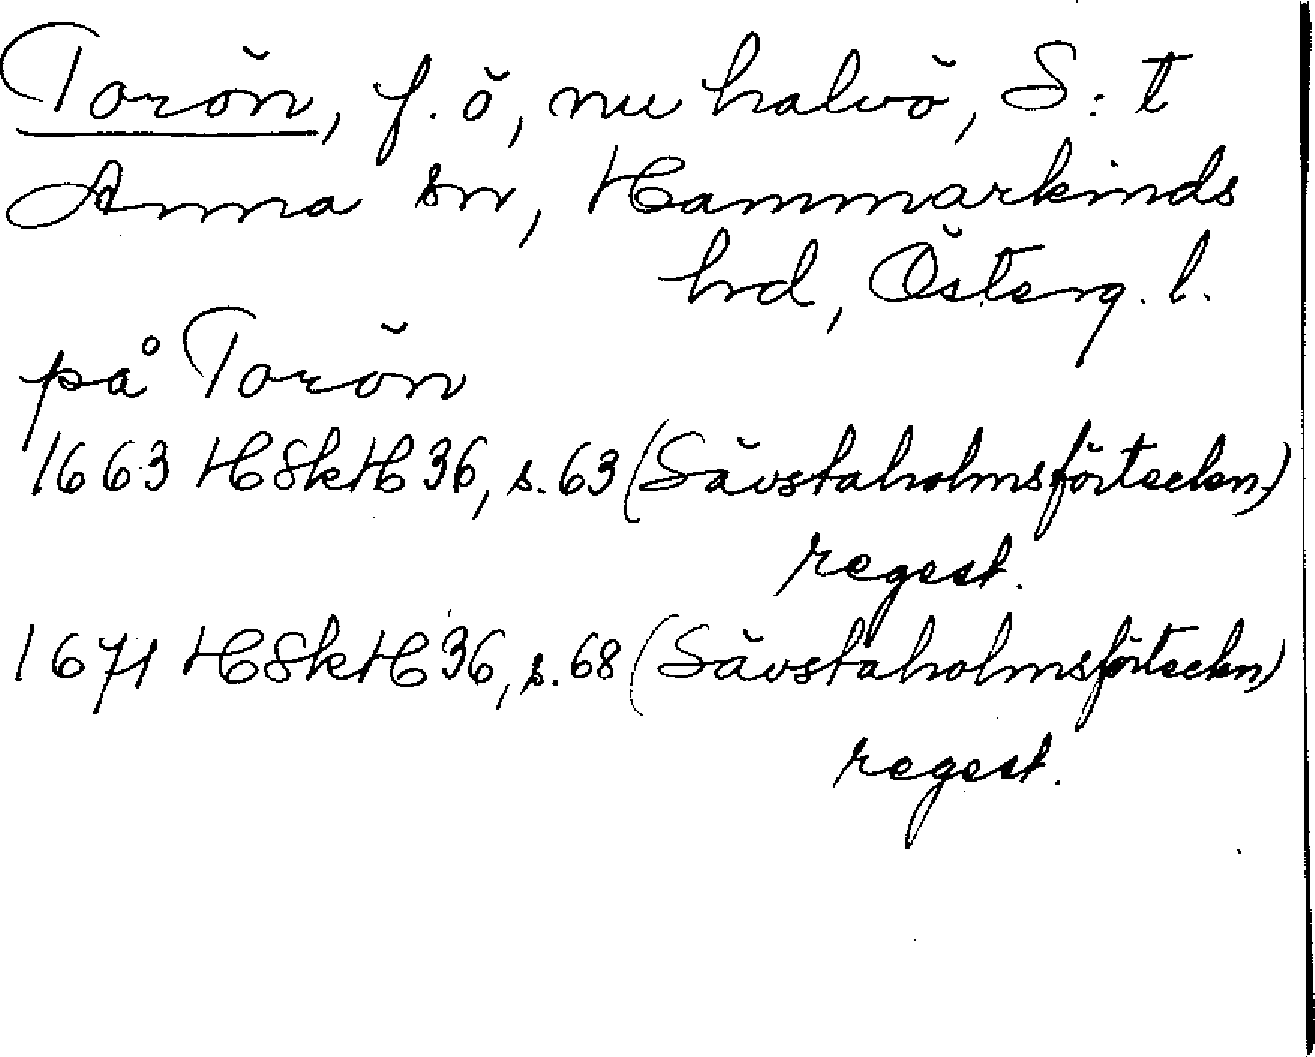 Torön, f. ö, nu halvö, S:t
Anna sn, Hammarkinds
hd, Österg. l.
på Torön
1663 HSkH 36, s. 63 (Sävstaholmsförteckn.)
regest.
1671 HSkH 36, s. 68 (Sävstaholmsförteckn)
regest.